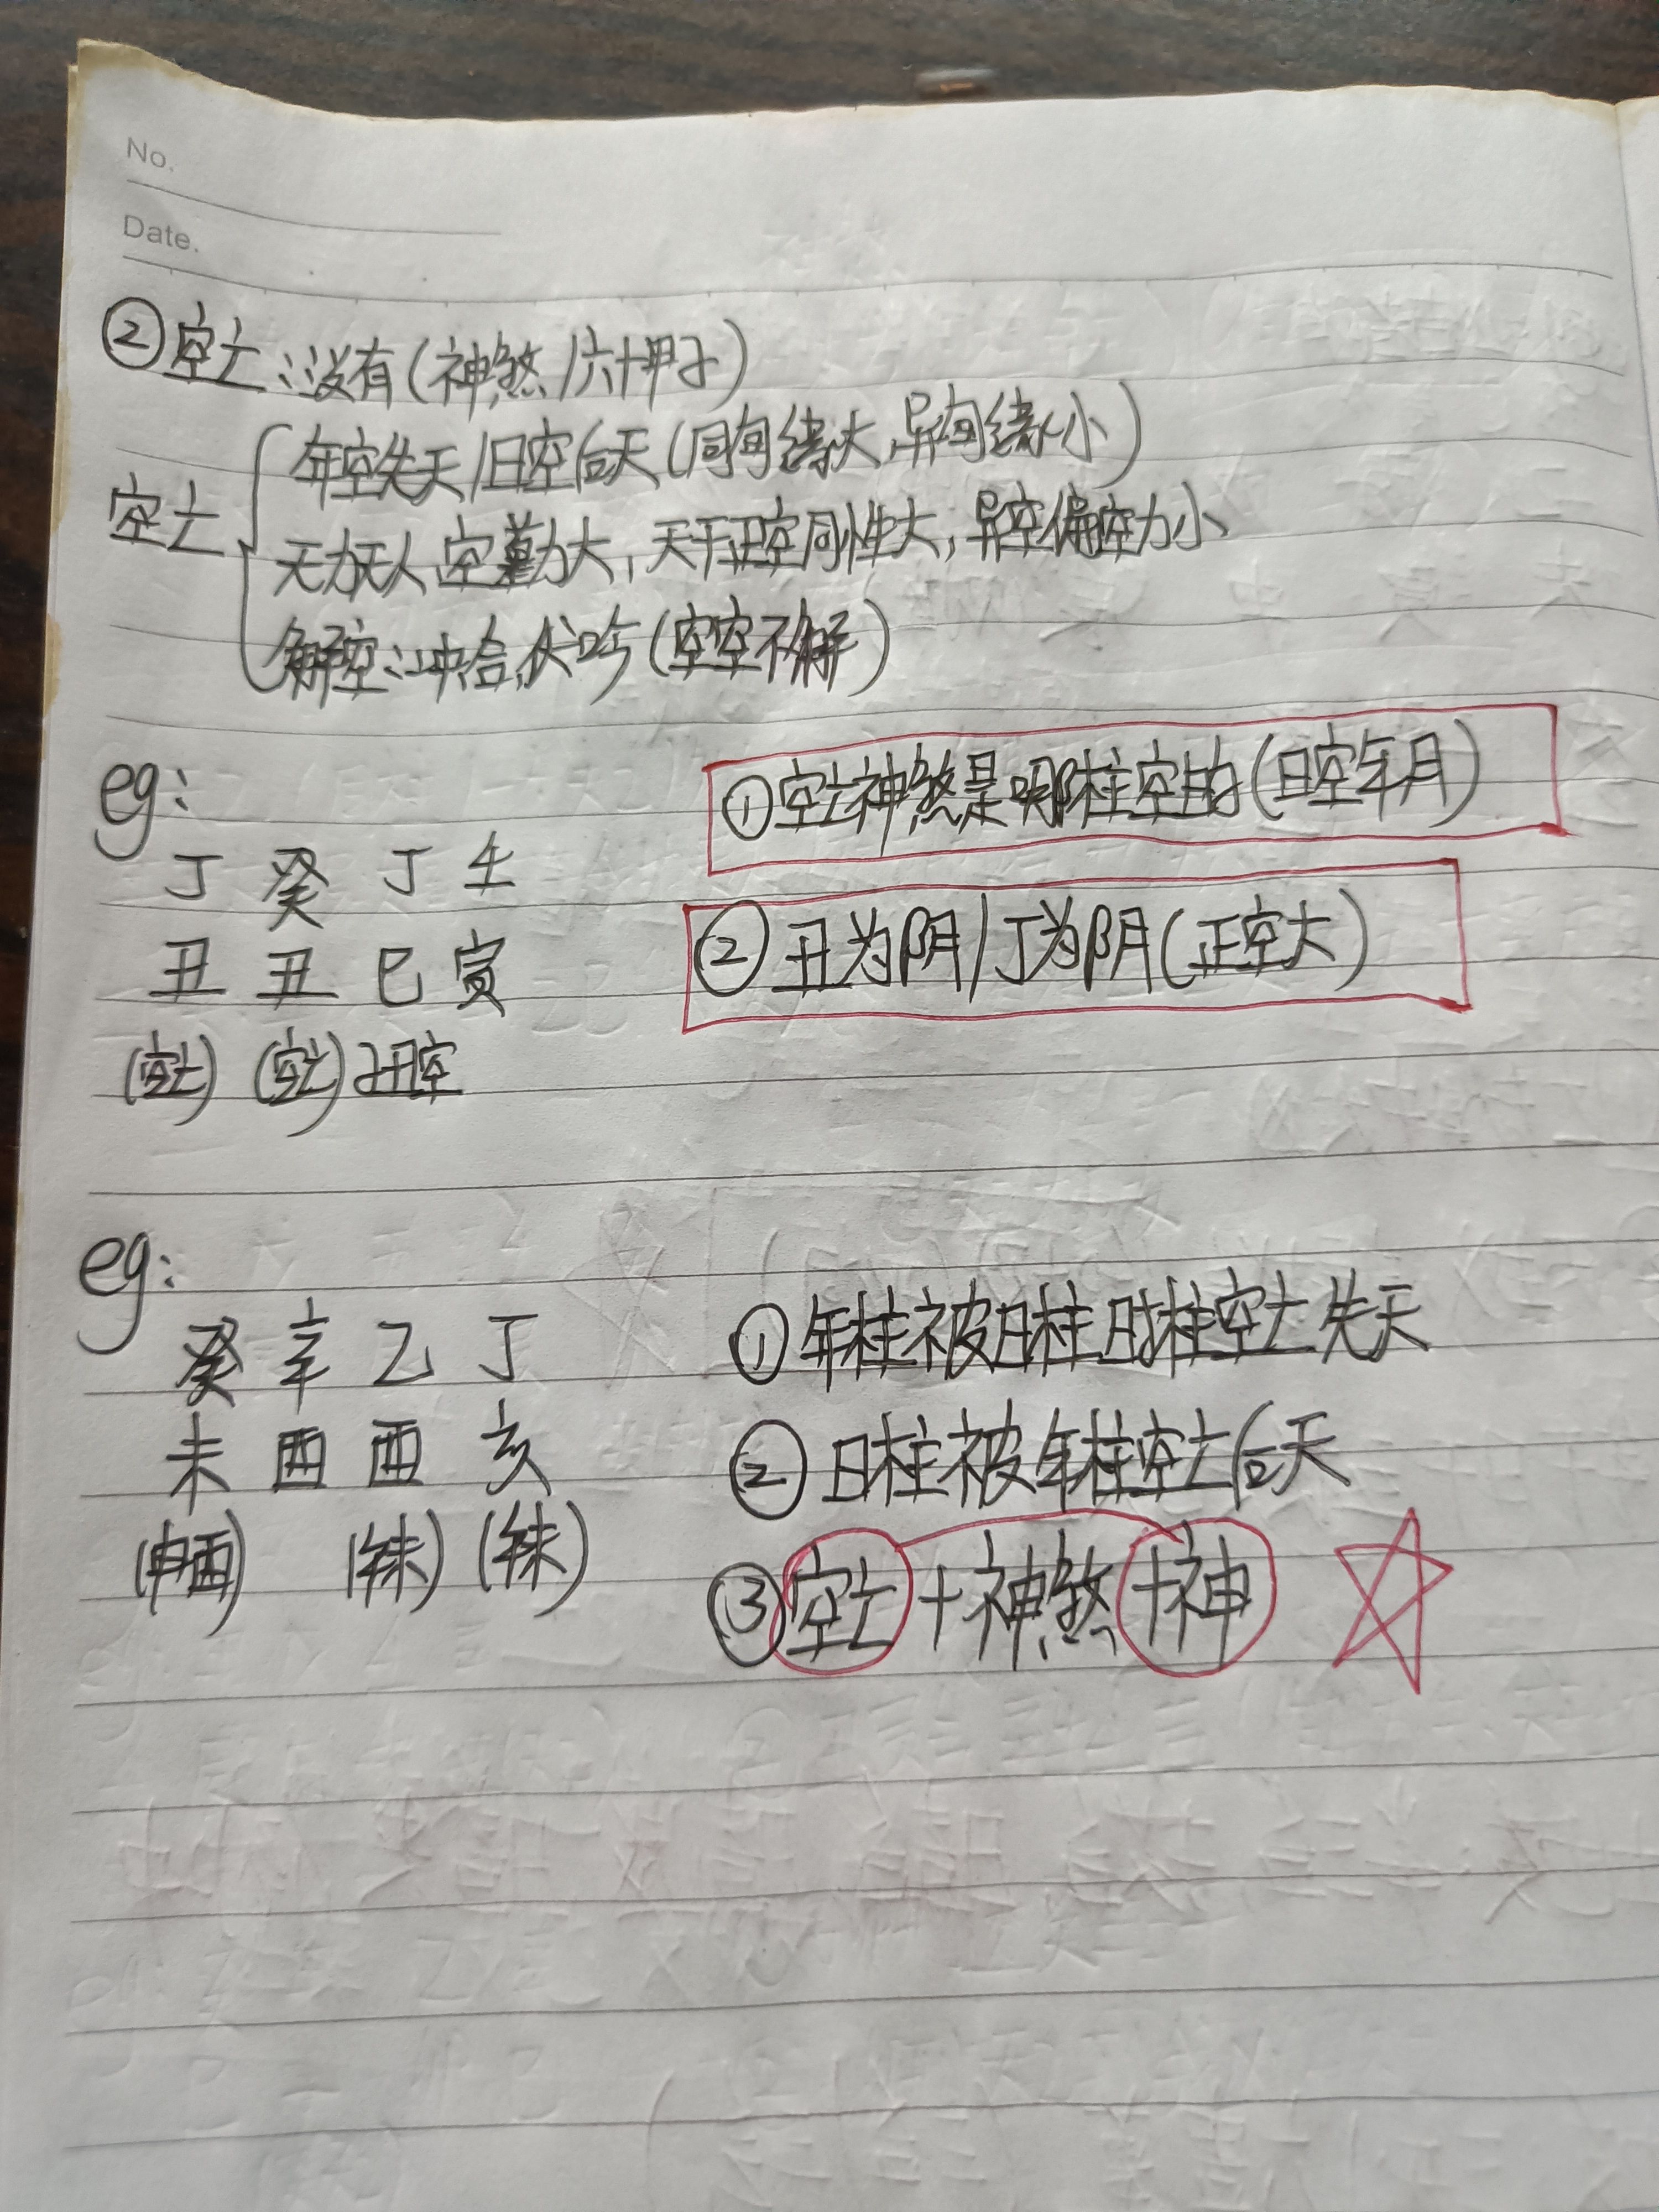 No.
Date.
②空亡:没有(神煞/六十甲子)
年空先天/日空后天(同旬绪大,异旬绪小)
空亡
天为天人,空勤大,天干正空同性大,异空偏空力小
解空:冲合,伏吟(空空不解)
eg:
①空亡神煞是哪柱空的(日空年月)
丁 癸 丁 壬
②丑为阴/丁为阴(正空大)
丑 丑 巳 寅
(空亡) (空亡) 子丑空
eg:
①年柱被日柱时柱空亡先天
癸 辛 乙 丁
②日柱被年柱空亡后天
未 酉 酉 亥
(申酉) (午未) (午未)
③空亡+神煞+神